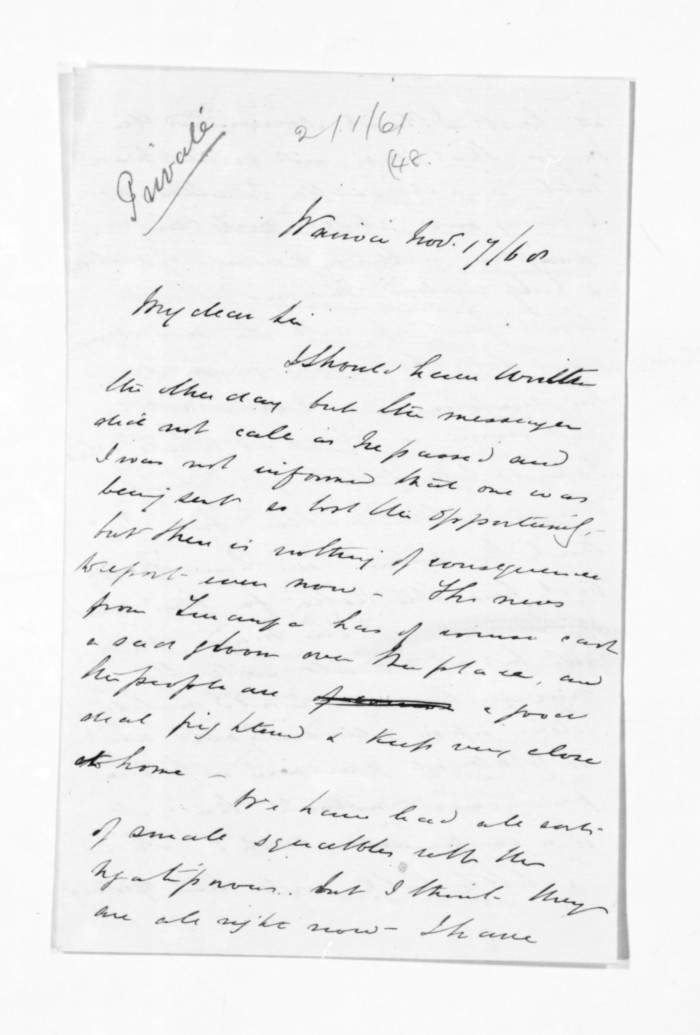 Private
2/1/61
(48.
Wairoa Nov. 17/68
My dear Sir
I Should have written
the other day but the messenger
did not call as he passed and
I was not informed that one was
being sent so lost the opportunity -
but there is nothing of consequence
to report even now - The news
from Turanga has of course cast
a sad gloom over the place, and
the people are of course a good
deal frightened & keep very close
at home -
We have had all sorts
of small squabbles with the
Ngatiporous. but I think they
are all right now - I have